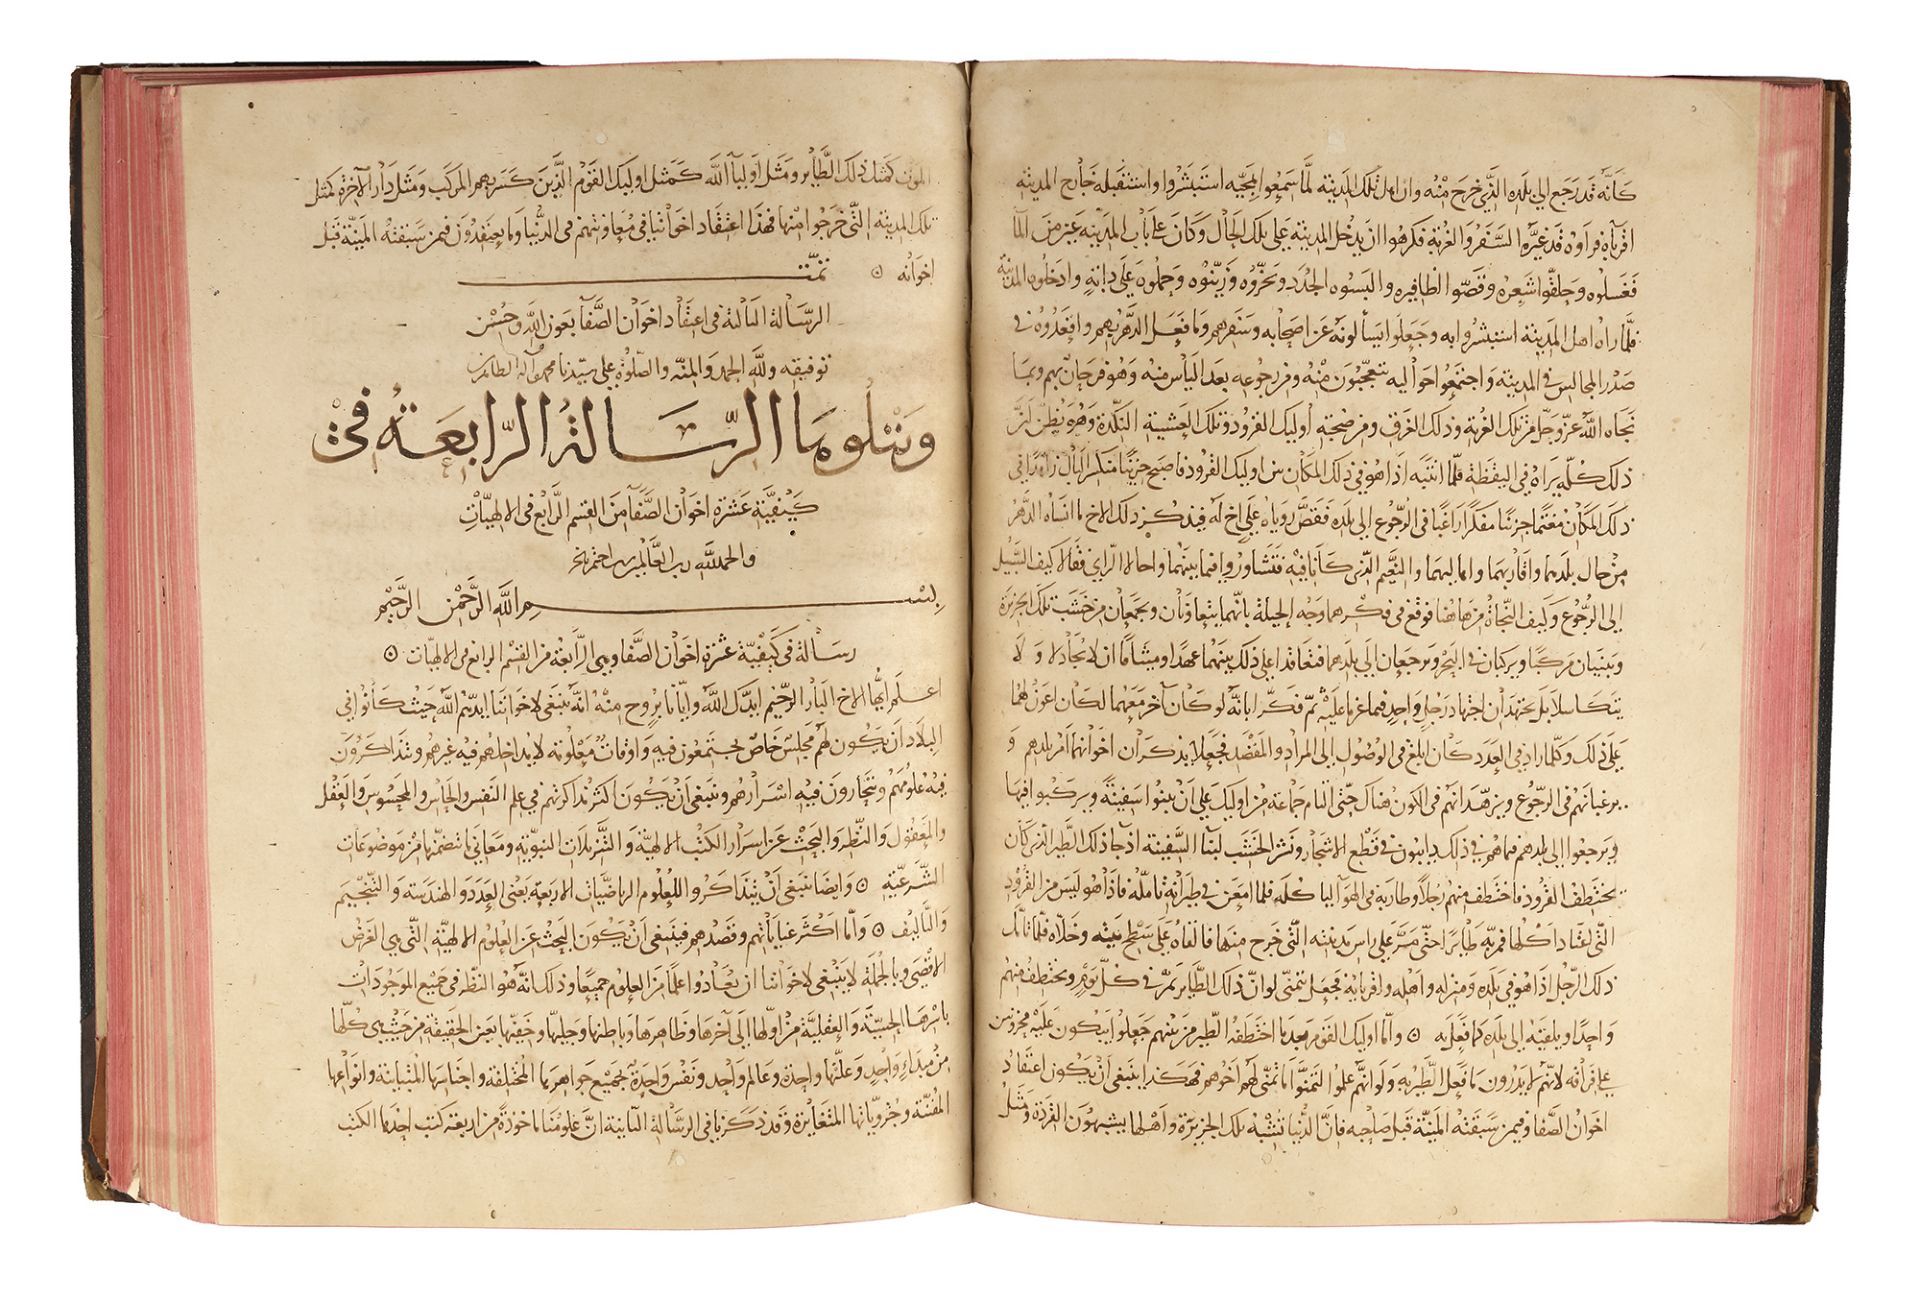 كأنه قد رجع الى بلده الذي خرج منه وان اهل تلك المدينة لما سمعوا بمجيه استبشروا واستقبله خارج المدينة
اقرباه فراوه قد غيره السفر والغربة فكرهوا ان يدخل المدينة على تلك الحال وكان على باب المدينة عين من الماء
فغسلوه وحلقوا شعره وقصوا اظافيره والبسوه الجدد وبخروه وزينوه وحملوه على دابة وادخلوه المدينة
فلما راه اهل المدينة استبشروا به وجعلوا يسألونه عن اصحابه وسفرهم وما فعل الدهر بهم واقعدوه في
صدر المجالس في المدينة واجتمعوا حواليه يتعجبون منه ومن رجوعه بعد الياس منه وهو فرحان بهم وبما
نجاه الله عز وجل من تلك الغربة وذلك الغرق ومن صحبة أوليك القرود وتلك العشية النكدة وهو يظن ان
ذلك كله يراه في اليقظة فلما انتبه اذا هو في ذلك المكان بين اوليك القرود فاصبح حزينا منكسر البال زاهدا في
ذلك المكان مغتما حزينا مفكرا راغبا في الرجوع الى بلده فقص روياه على اخ له فيذكر ذلك الاخ ما انساه الدهر
من حال بلدهما واقاربهما واهاليهما والنعيم الذي كانا فيه فتشاوروا فيما بينهما واجالا الراي فقالا كيف السبيل
إلى الرجوع وكيف النجاة من هاهنا فوقع في فكرهما وجه الحيلة بانهما يتعاونان ويجمعان من خشب تلك الجزيرة
ويبنيان مركبا ويركبان في البحر ويرجعان إلى بلدهما فتعاقدا على ذلك بينهما عهدا وميثاقا ان لا يتخاذلا ولا
يتكاسلا بل يجتهدان اجتهاد رجل واحد فيما عزما عليه ثم فكرا بانه لو كان آخر معهما لكان اعون لهما
على ذلك وكلما زاد في العدد كان ابلغ في الوصول الى المراد والمقصد فجعلا يذكران اخوانهما امر بلدهم و
يرغبانهم في الرجوع ويزهدانهم في الكون هناك حتى التام جماعة من اوليك على ان يبنوا سفينة ويركبوا فيها
ويرجعوا إلى بلدهم فبما هم في ذلك دايبون في قطع الاشجار ونشر الخشب لبنا السفينة اذ جا ذلك الطير الذي كان
يختطف القرود فاختطف منهم رجلا وطار به في الهوا ليا كله فلما امعن في طيرانه تامله فاذا هو ليس من القرود
التي اعتاد اكلها فمر به طايرا حتى مر على راس مدينته التي خرج منها فالقاه على سطح بيته وخلاه فلما تامل
ذلك الرجل اذا هو في بلده ومنزله واهله واقربايه فجعل يتمنى لو ان ذلك الطاير يمر في كل يوم ويختطف منهم
واحدا ويلقيه إلى بلده كما فعل به ۞ واما اوليك القوم بعد ما اختطفه الطير من بينهم جعلوا يبكون عليه محزونين
على فراقه لانهم لا يدرون ما فعل الطير به ولو انهم علموا لتمنوا ما تمنى لهم اخوهم فهكذا ينبغي أن يكون اعتقاد
اخوان الصفا فيمن سبقته المنية قبل صاحبه فان الدنيا تشبه تلك الجزيرة واهلها يشبهون القردة ومثل
الموت كمثل ذلك الطاير ومثل اوليآ الله كمثل اوليك القوم الذين كسر بهم المركب ومثل دار الآخرة كمثل
تلك المدينة التي خرجوا منها فهذا اعتقاد اخواننا في معاونتهم في الدنيا وما يعتقدون فيمن سبقته المنية قبل
اخوانه ۞ تمت
الرسالة الثالثة في اعتقاد اخوان الصفآ بعون الله وحسن
توفيقه ولله الحمد والمنة والصلوة على سيدنا محمد وآله الطاهرين
ويتلوها الرسالة الرابعة في
كيفية عشرة اخوان الصفآ من القسم الرابع في الالهيات
والحمد لله رب العالمين رب اختم بخير
بسم الله الرحمن الرحيم
رسالة في كيفية عشرة اخوان الصفا وهي الرابعة من القسم الرابع في الالهيات ۞
اعلم ايها الاخ البار الرحيم ايدك الله وايانا بروح منه انه ينبغي لاخواننا ايدهم الله حيث كانوا في
البلاد أن يكون لهم مجلس خاص يجتمعون فيه واوقات معلومة لا يداخلهم فيه غيرهم ويتذاكرون
فيه علومهم ويتحاورون فيه اسرارهم وينبغي أن يكون اكثر مذاكرتهم في علم النفس والحاس والمحسوس والعقل
والمعقول والنظر والبحث عن اسرار الكتب الالهية والتنزيلات النبوية ومعاني ما تتضمنها من موضوعات
الشرعية ۞ وايضا ينبغي أن يتذاكروا العلوم الرياضيات الاربعة يعنى العدد والهندسة والتنجيم
والتاليف ۞ واما اكثر عناياتهم وقصدهم فينبغي أن يكون البحث عن العلوم الالهية التي هي الغرض
الاقصى وبالجملة لا ينبغي لاخواننا ان يعادوا علما من العلوم جميعا وذلك انه هو النظر في جميع الموجودات
باسرها الحسية والعقلية من اولها إلى آخرها وظاهرها وباطنها وجليها وخفيها بعين الحقيقة من حيث هي كلها
من مبداء واحد وعلتها واحدة وعالم واحد ونفس واحدة بجميع جواهرها المختلفة واجناسها المتباينة وانواعها
المفننة وجزوياتها المتغايرة وقد ذكرنا في الرسالة الثانية ان علومنا ماخوذة من اربعة كتب احدها الكتب